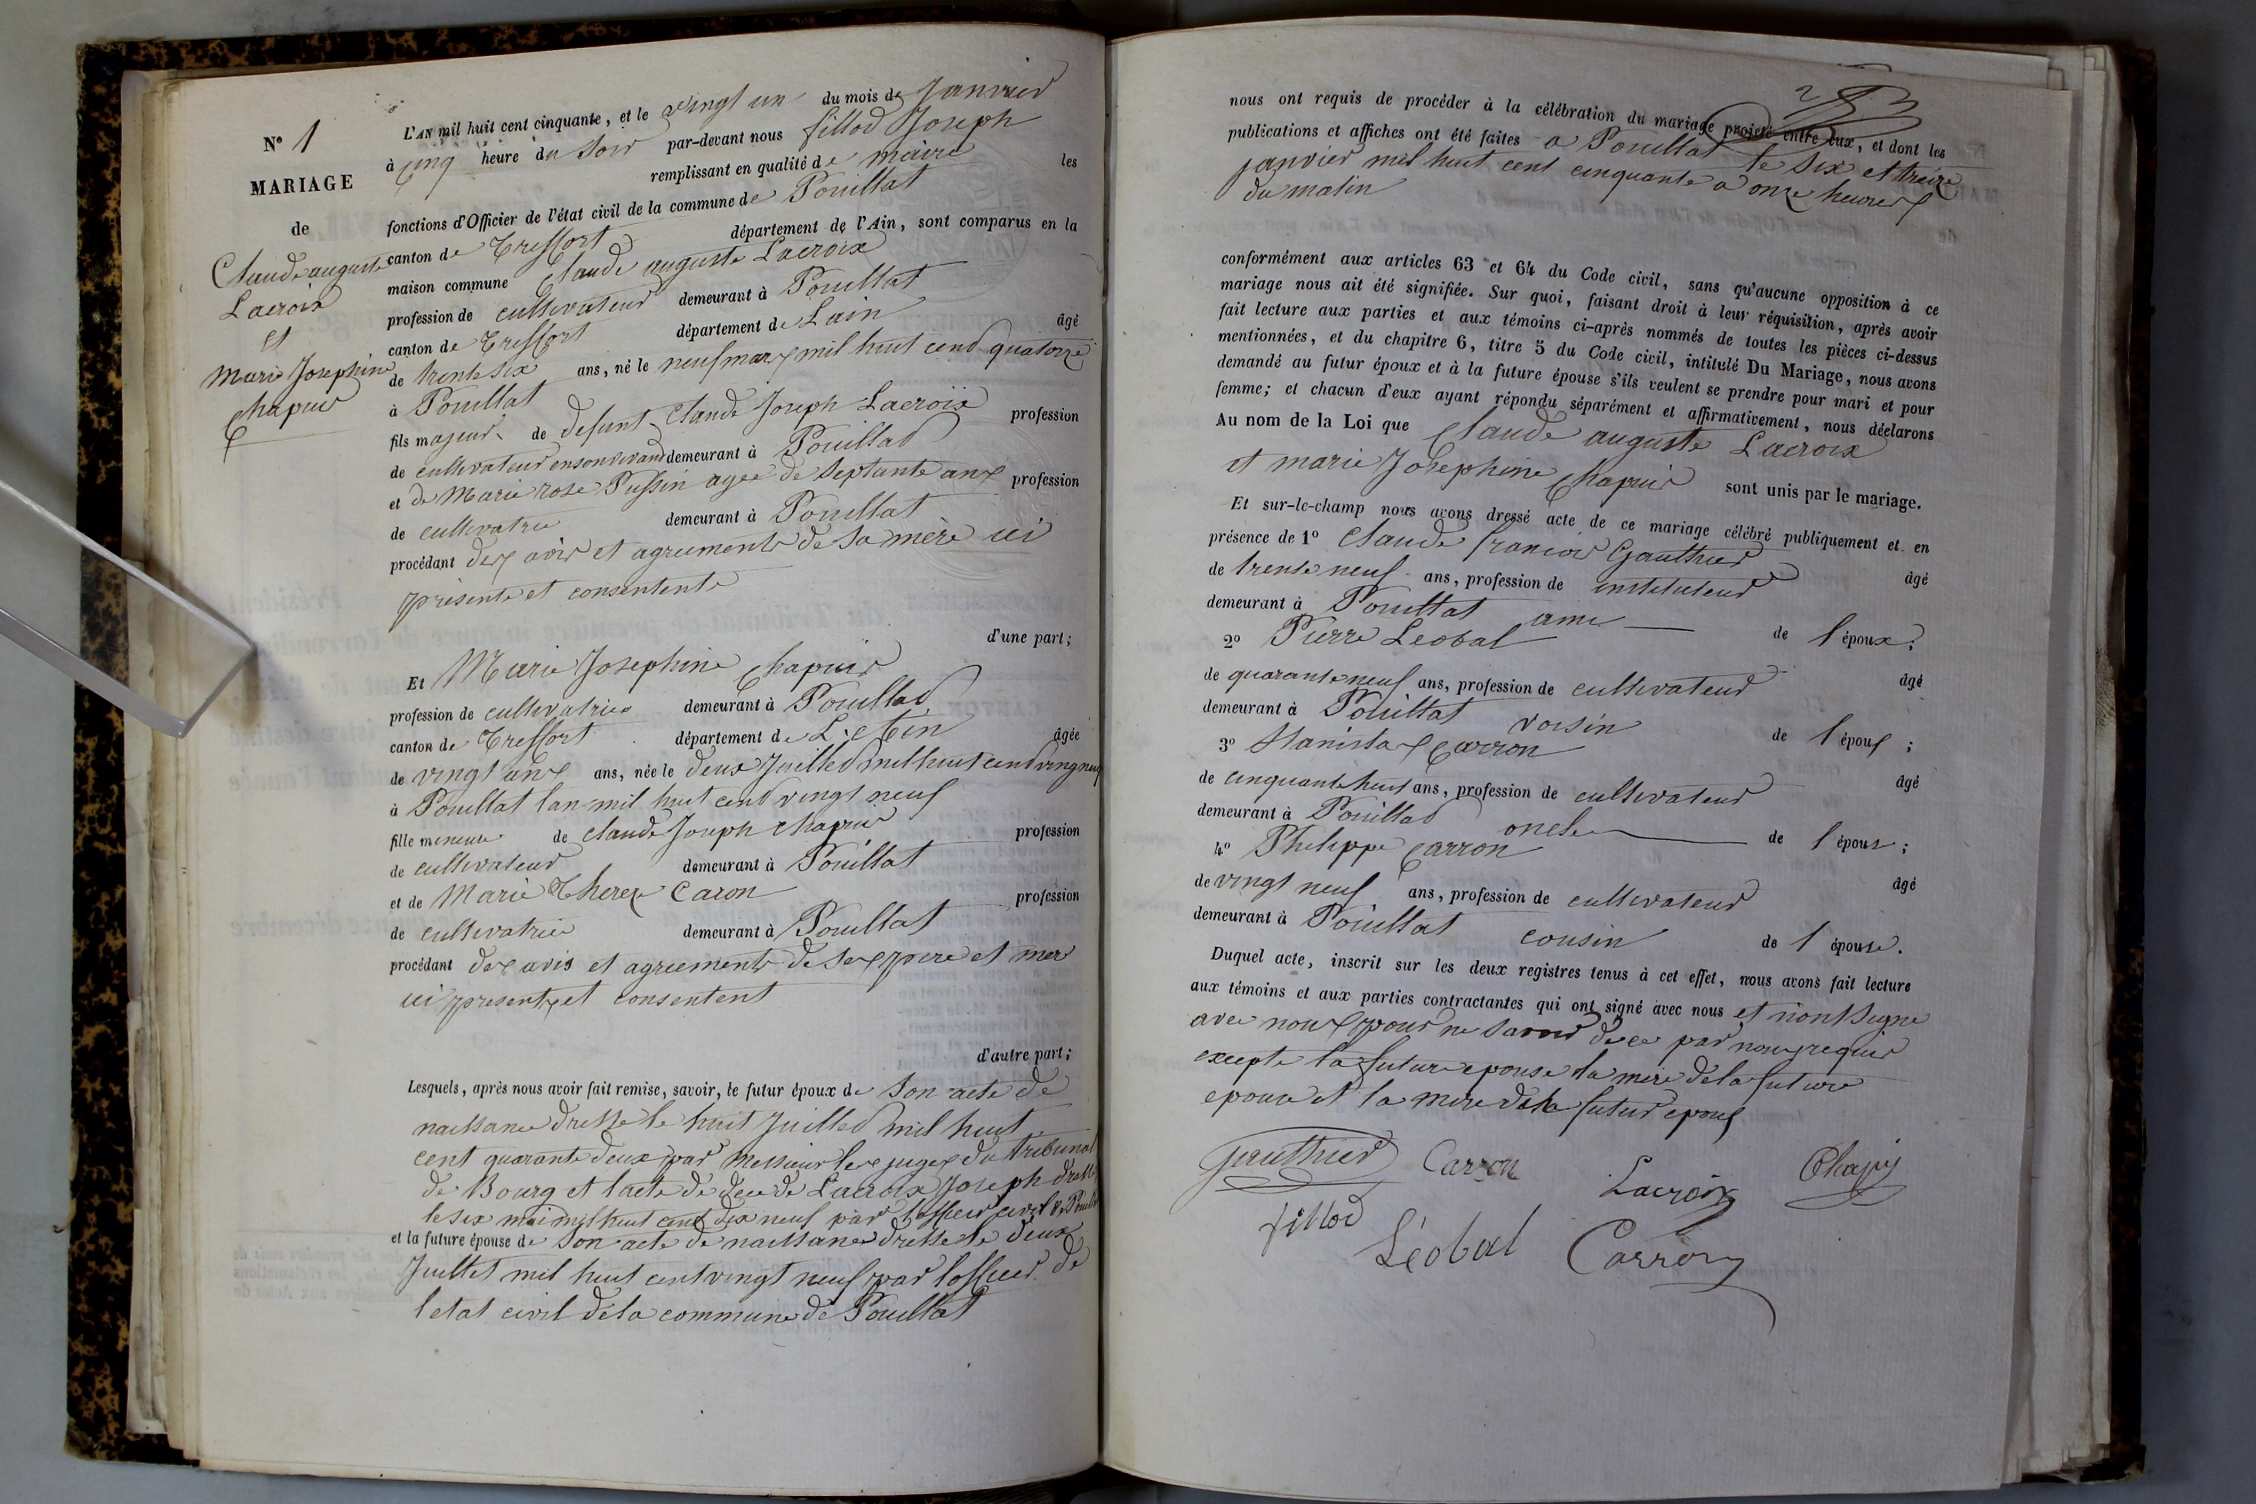 N° 1
MARIAGE
de
Claude auguste
Lacroix
et
Marie Josephine
Chapuis
L'AN mil huit cent cinquante, et le vingt un du mois de Janvier
à cinq heure du soir par-devant nous fillod Joseph
remplissant en qualité de maire les
fonctions d'Officier de l'état civil de la commune de Pouillat
canton de Treffort département de l'Ain, sont comparus en la
maison commune Claude auguste Lacroix
profession de cultivateur demeurant à Pouillat
canton de Treffort département de Lain âgé
de trente six ans, né le neuf mars mil huit cend quatorze
à Pouillat
fils majeur de defunt Claude Joseph Lacroix profession
de cultivateur en son vivand demeurant à Pouillad
et de Marie rose Pussin agée de septante ans profession
de cultivatrice demeurant à Pouillat
procédant des avis et agrements de sa mère ici
présente et consentente
d'une part;
Et Marie Josephine Chapuis
profession de cultivatrice demeurant à Pouillad
canton de Treffort département de L'Ain âgée
de vingt ans ans, née le deux Juilled mil huit cend ving neuf
à Pouillat lan mil huit cend vingt neuf
fille mineure de Claude Joseph Chapuis profession
de cultivateur demeurant à Pouillat
et de Marie Thereze Caron profession
de cultivatrice demeurant à Pouillat
procédant des avis et agreements de ses pere et mere
ici presents et consentent
d'autre part;
Lesquels, après nous avoir fait remise, savoir, le futur époux de son acte de
naissance dresse le huit Juilled mil huit
cent quarante deux par Messieur les juges du tribunal
de Bourg et lacte de dece de Lacroix Joseph dresse
le six mai mil huit cend dix neuf par lofficier civil de Pouillat
et la future épouse de son acte de naissance dresse le deux
Juillet mil huit cent vingt neuf par lofficier de
letat civil dela commune de Pouillat
2
nous ont requis de procéder à la célébration du mariage projeté entre eux, et dont les
publications et affiches ont été faites a Pouillat le six et treize
janvier mil huit cent cinquante a onze heures
du matin
conformément aux articles 63 et 64 du Code civil, sans qu'aucune opposition à ce
mariage nous ait été signifiée. Sur quoi, faisant droit à leur réquisition, après avoir
fait lecture aux parties et aux témoins ci-après nommés de toutes les pièces ci-dessus
mentionnées, et du chapitre 6, titre 5 du Code civil, intitulé Du Mariage, nous avons
demandé au futur époux et à la future épouse s'ils veulent se prendre pour mari et pour
femme; et chacun d'eux ayant répondu séparément et affirmativement, nous déclarons
Au nom de la Loi que Claude auguste Lacroix
et marie Josephine Chapuis sont unis par le mariage.
Et sur-le-champ nous avons dressé acte de ce mariage célébré publiquement et en
présence de 1° Claude francois Gauthier âgé
de trente neuf ans, profession de instituteur
demeurant à Pouillat ami de l'époux;
2° Pierre Leobal âgé
de quarante neuf ans, profession de cultivateur
demeurant à Pouillat voisin de l'époux;
3° Stanislas Carron âgé
de cinquante huit ans, profession de cultivateur
demeurant à Pouillad oncle de l'épouse;
4° Philippe Carron âgé
de vingt neuf ans, profession de cultivateur
demeurant à Pouillat cousin de l'épouse.
Duquel acte, inscrit sur les deux registres tenus à cet effet, nous avons fait lecture
aux témoins et aux parties contractantes qui ont signé avec nous et nont signe
avec nous pour ne savoir de ce par nous requis
excepte la future epouse la mere dela future
epouse et la mere dela futur epoux
Gauthier Carron Lacroix Chapuy
fillod Léobal Carron